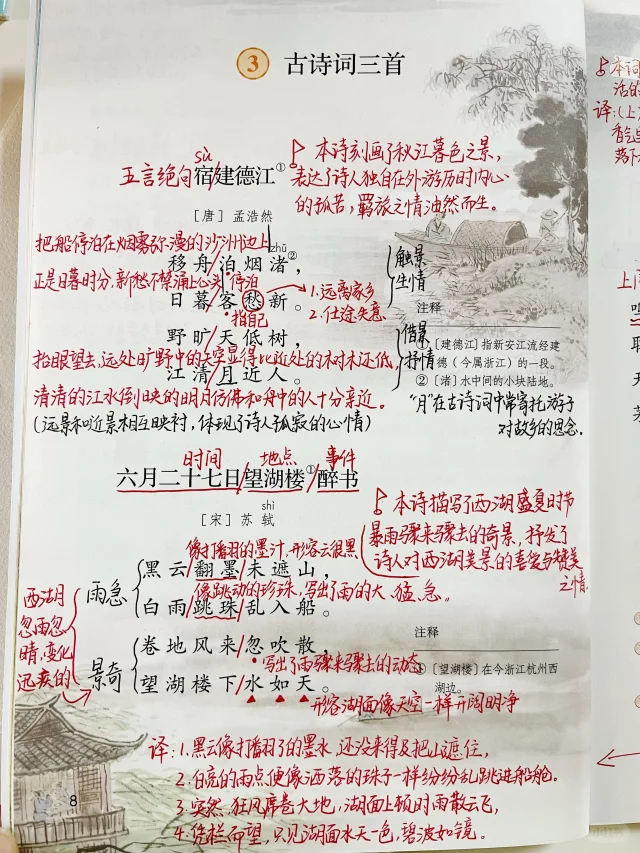 3 古诗词三首
五言绝句 sù 宿/建德江①
本诗刻画了秋江暮色之景,
表达了诗人独自在外游历时内心
的孤苦,羁旅之情油然而生。
[唐] 孟浩然
把船停泊在烟雾弥漫的沙洲边上
zhǔ
移舟/泊烟渚②,
触景
生情
正是日暮时分,新愁不禁涌上心头
停泊
日暮/客愁新。
1.远离家乡
2.仕途失意
指自己
野旷/天低树,
借景
抒情
抬眼望去,远处旷野中的天空显得比近处的树木还低,
江清/月近人。
清清的江水倒映的明月仿佛和舟中的人十分亲近。
(远景和近景相互映衬,体现了诗人孤寂的心情)
注释
①[建德江]指新安江流经建
德(今属浙江)的一段。
②[渚]水中间的小块陆地。
“月”在古诗词中常寄托游子
对故乡的思念。
时间 地点 事件
六月二十七日/望湖楼①/醉书
shì
[宋] 苏轼
本诗描写了西湖盛夏时节
暴雨骤来骤去的奇景,抒发了
诗人对西湖美景的喜爱与赞美
之情
像打翻的墨汁,形容云很黑
雨急
黑云/翻墨/未遮山,
像跳动的珍珠,写出了雨的大、猛、急。
白雨/跳珠/乱入船。
西湖
忽雨忽
晴,变化
迅疾的
景奇
卷地风来/忽吹散,
写出了雨骤来骤去的动态
望湖楼下/水如天。
形容湖面像天空一样开阔明净
注释
①[望湖楼]在今浙江杭州西
湖边。
译:1.黑云像打翻了的墨水,还没来得及把山遮住,
2.白亮的雨点便像洒落的珠子一样纷纷乱跳进船舱。
3.突然,狂风席卷大地,湖面上顿时雨散云飞,
4.凭栏而望,只见湖面水天一色,碧波如镜。
8
本词
活的
译:(上)
落下